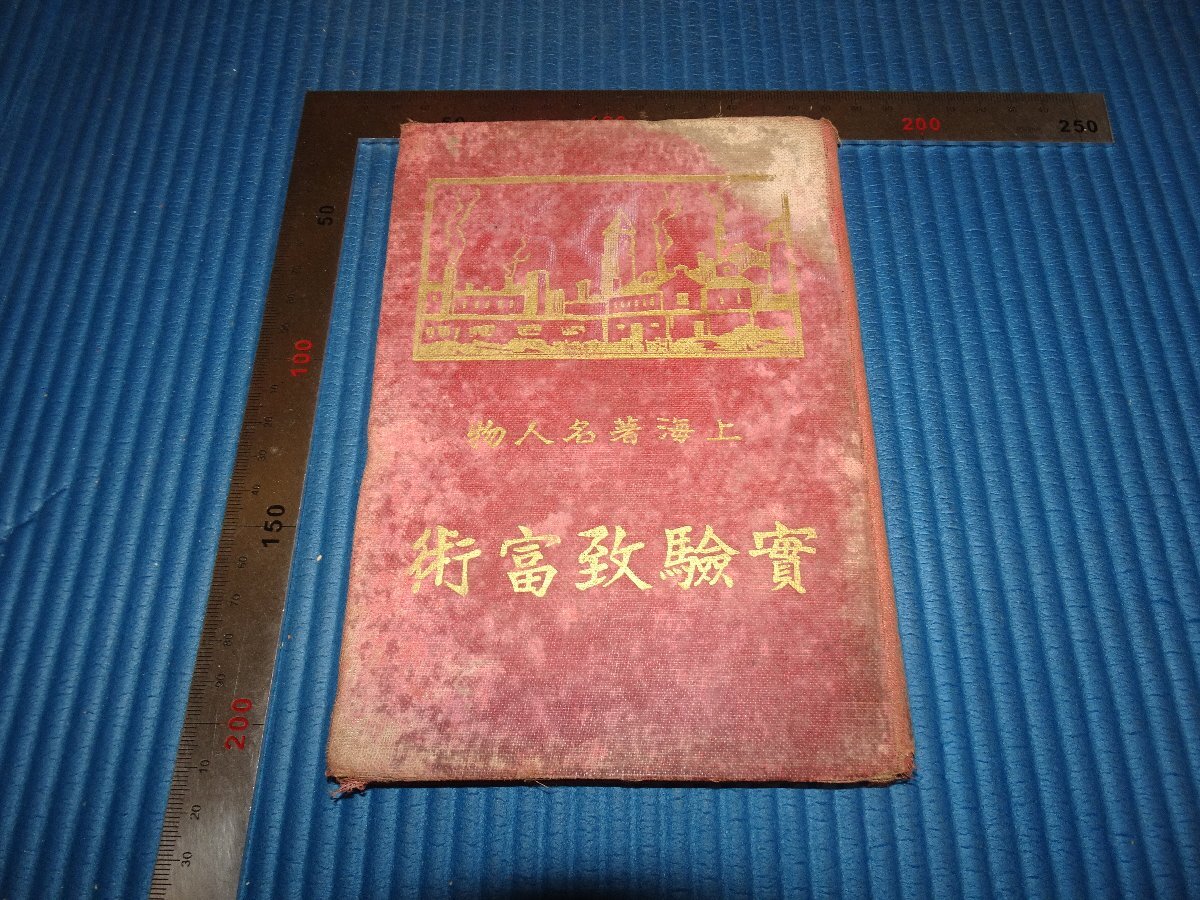 50 200 250
50
100
150
200
上海著名人物
實驗致富術